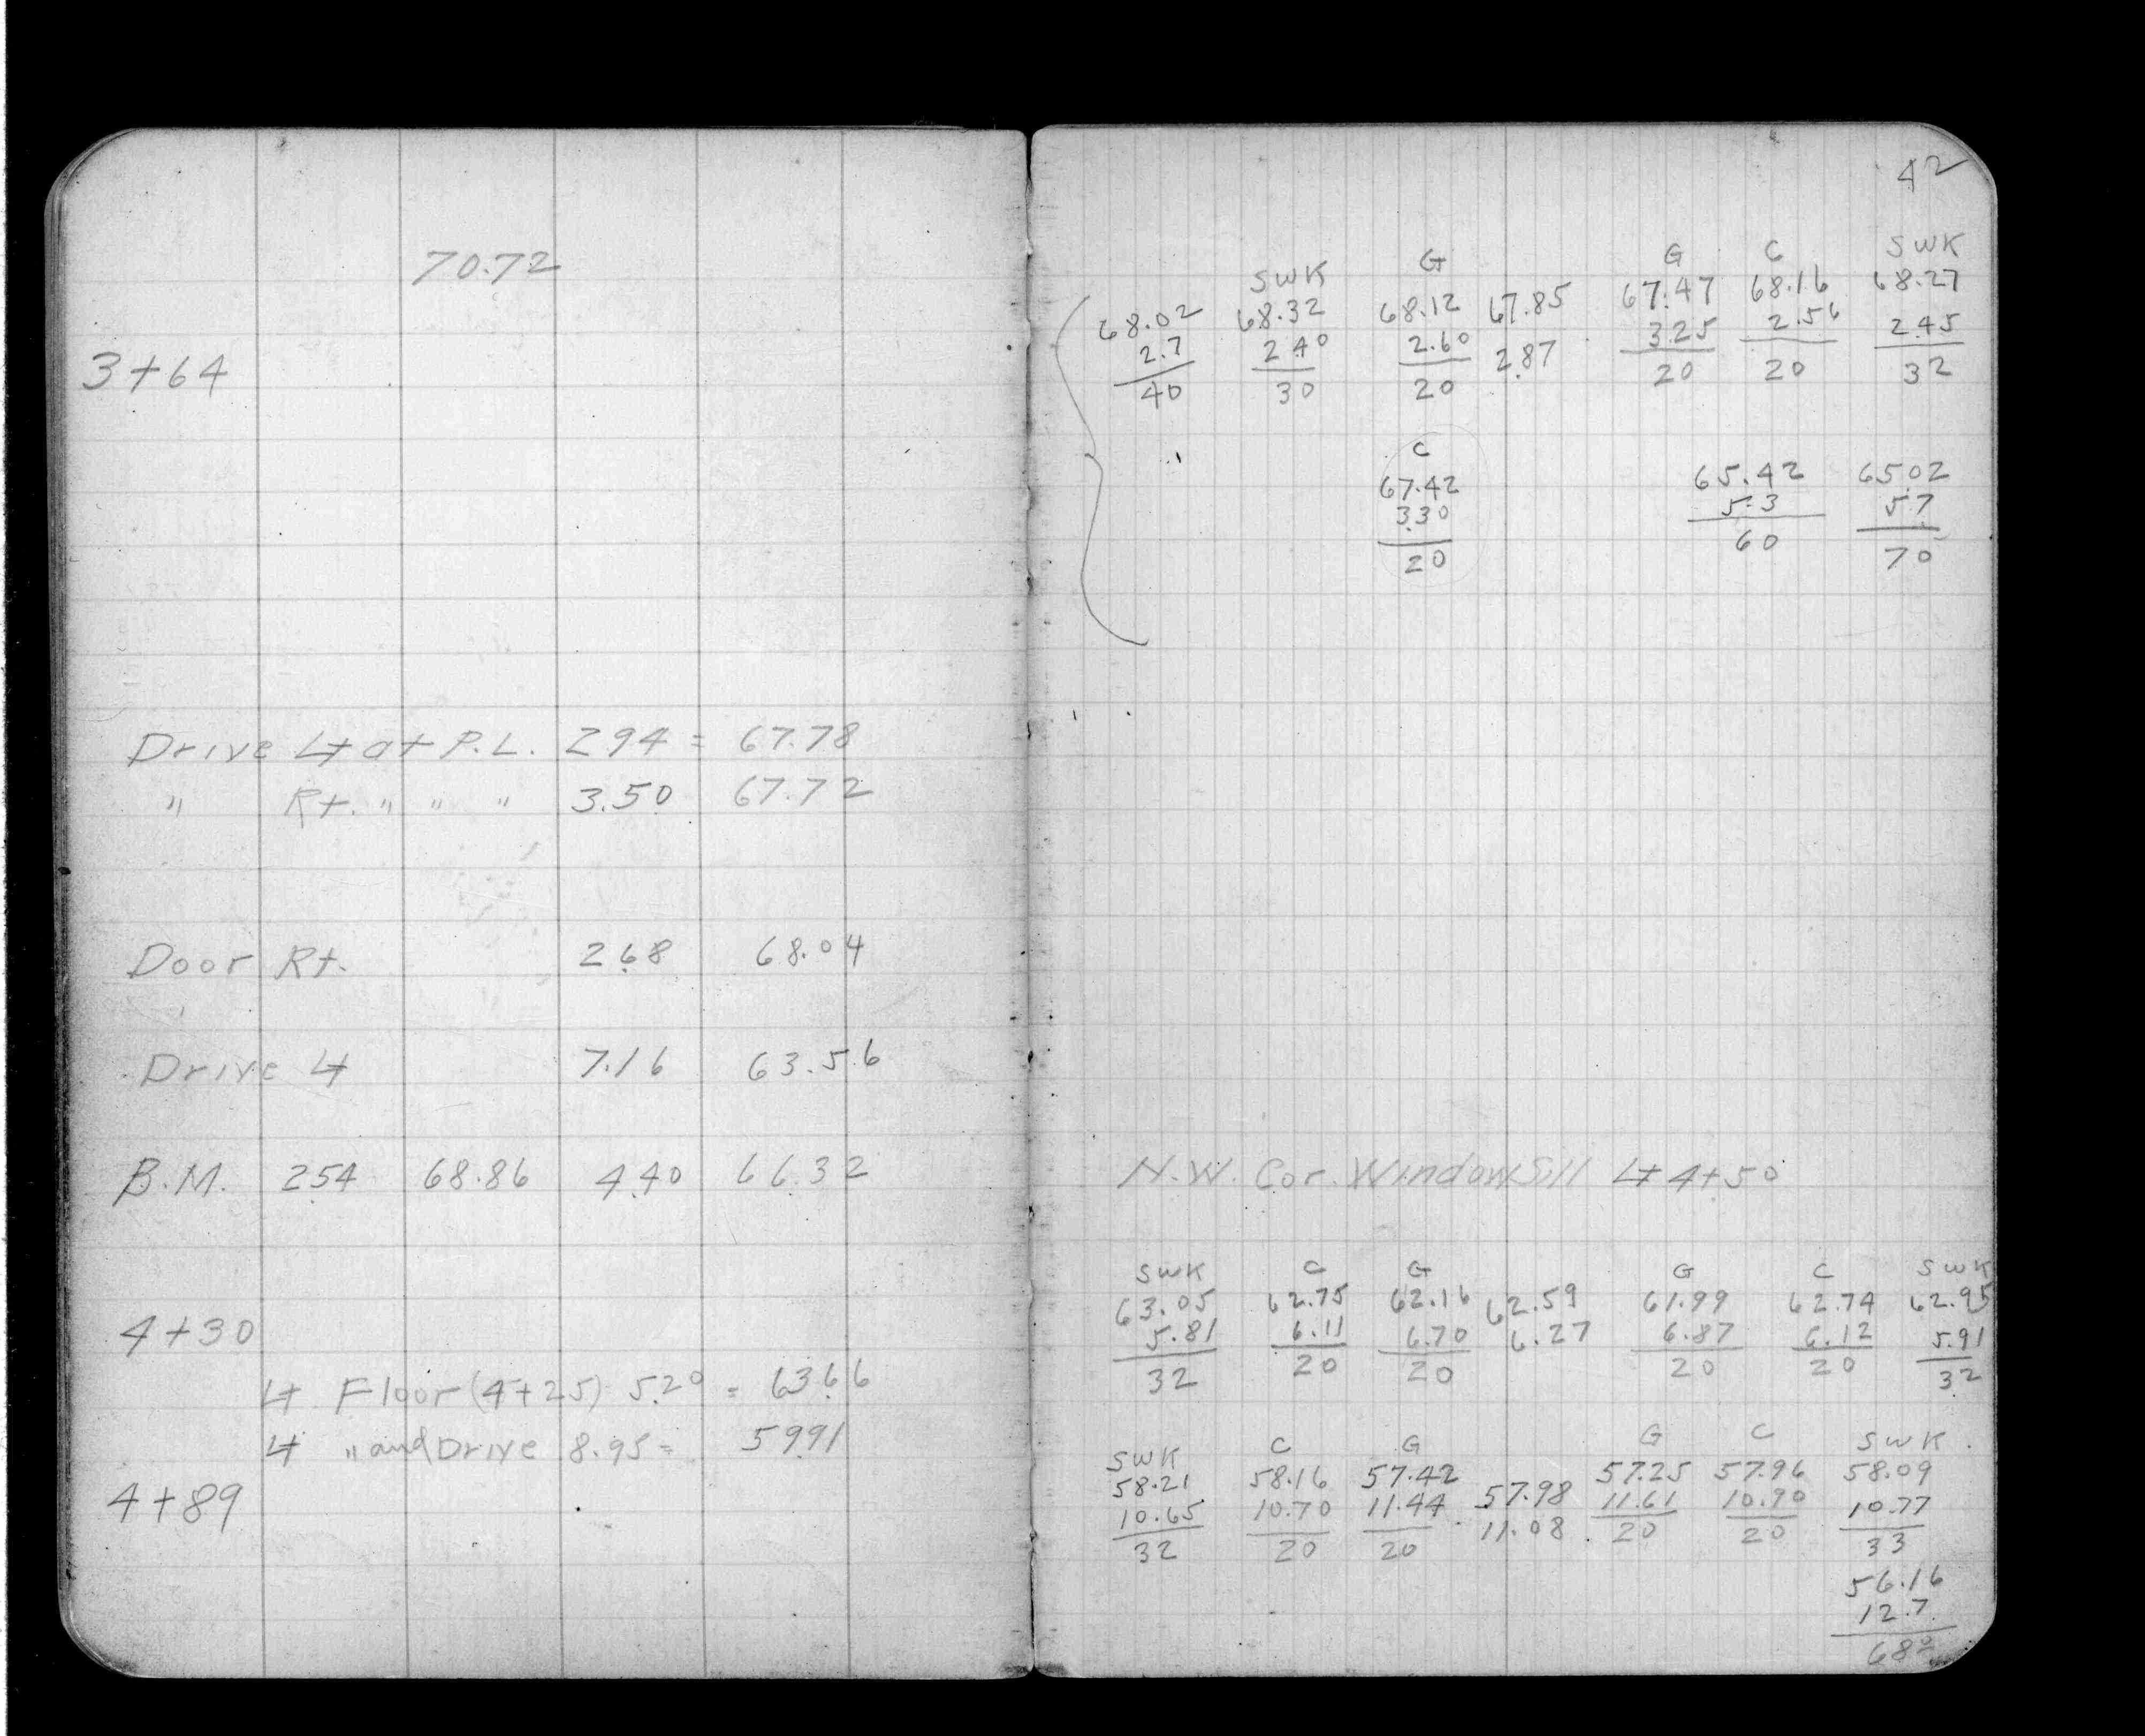 70.72
3+64
Drive Lt at P.L. 294 = 67.78
" Rt. " " " 3.50 67.72
Door Rt. 2.68 68.04
Drive Lt 7.16 63.56
B.M. 2.54 68.86 4.40 66.32
4+30
Lt Floor (4+25) 5.20 = 63.66
Lt " and Drive 8.95 = 59.91
4+89
42
SWK G G C SWK
68.02 68.32 68.12 67.85 67.47 68.16 68.27
2.7 2.40 2.60 2.87 3.25 2.56 2.45
40 30 20 20 20 32
C
67.42 65.42 65.02
3.30 5.3 5.7
20 60 70
N.W. Cor. Window Sill Lt 4+50
SWK C G G C SWK
63.05 62.75 62.16 62.59 61.99 62.74 62.95
5.81 6.11 6.70 6.27 6.87 6.12 5.91
32 20 20 20 20 32
SWK C G G C SWK
58.21 58.16 57.42 57.98 57.25 57.96 58.09
10.65 10.70 11.44 11.08 11.61 10.90 10.77
32 20 20 20 20 33
56.16
12.7
68